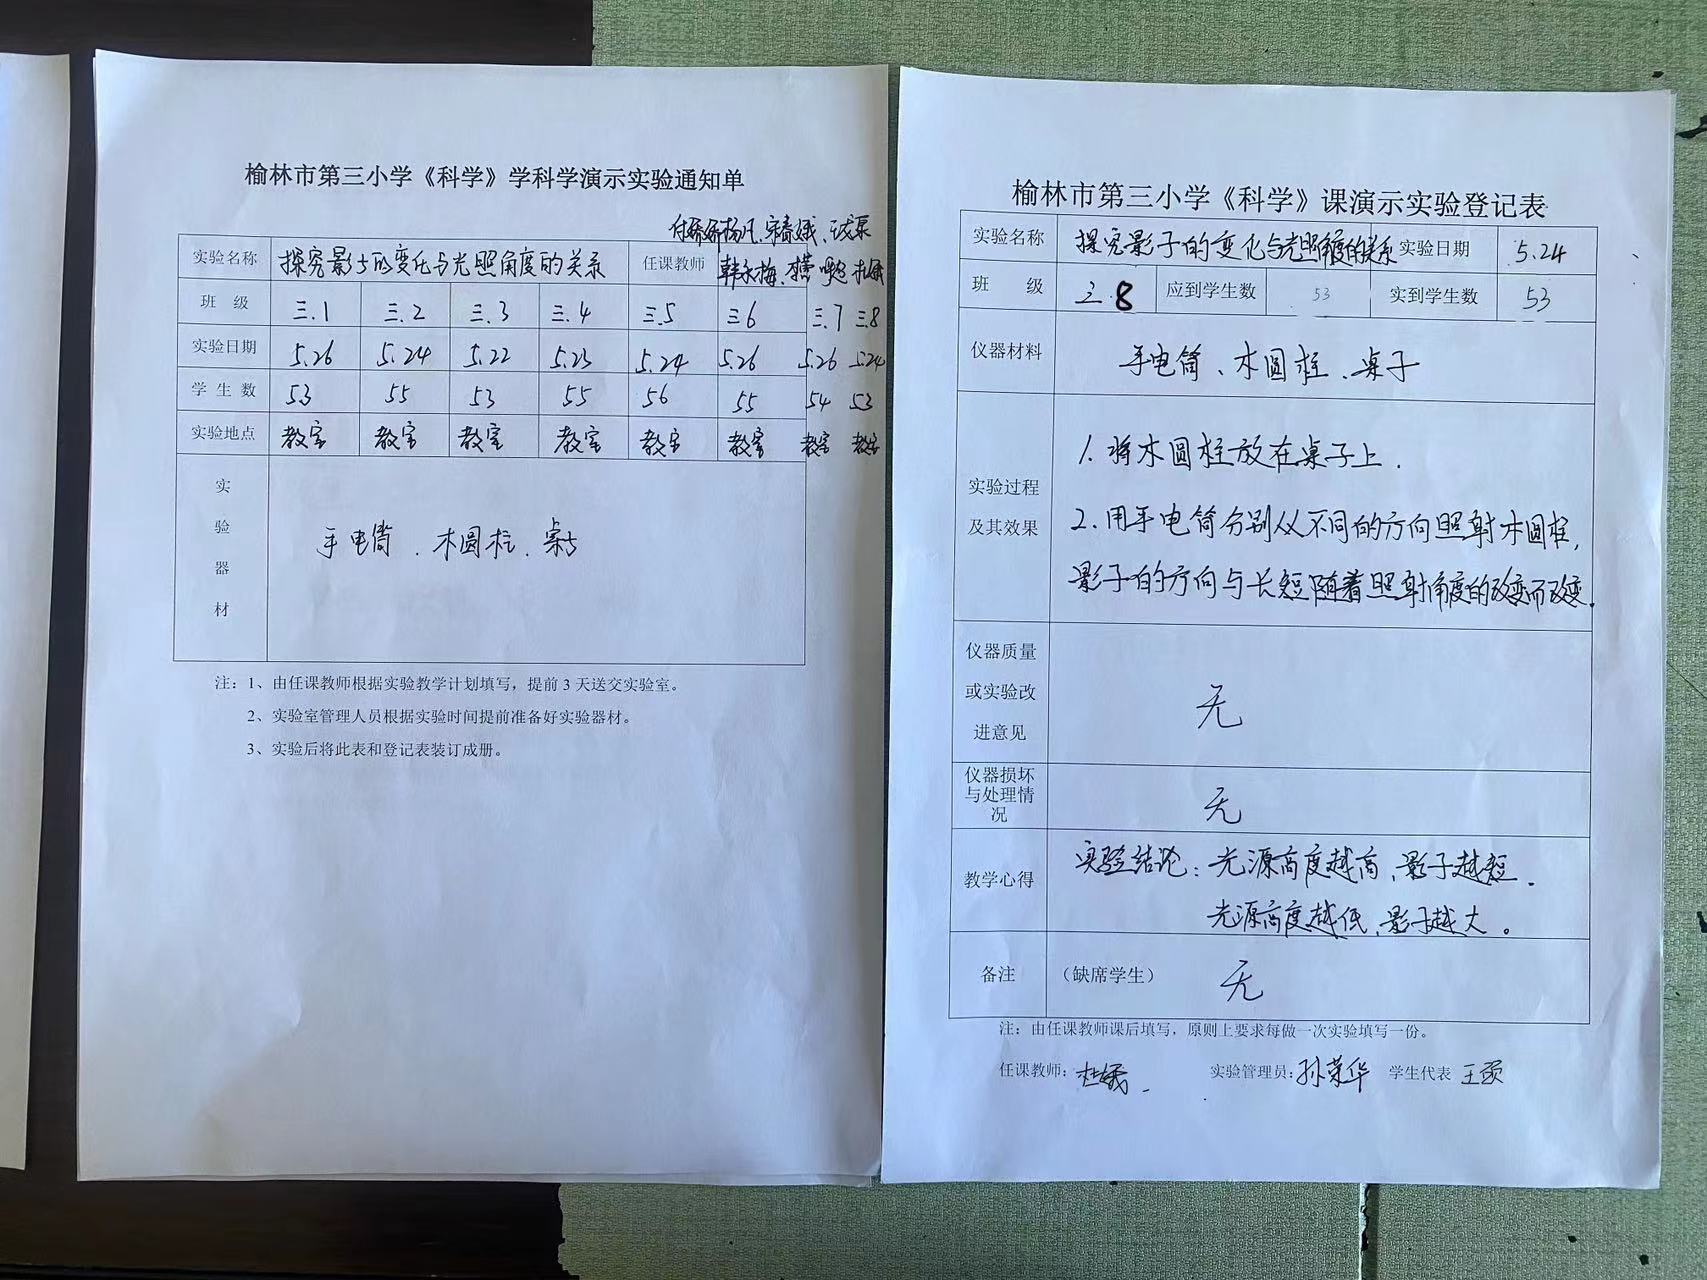 榆林市第三小学《科学》学科学演示实验通知单
杨凡、宋春娥、
实验名称 探究影子的变化与光照角度的关系 任课教师 韩永梅、
班 级 三.1 三.2 三.3 三.4 三.5 三6 三.7 三.8
实验日期 5.26 5.24 5.22 5.23 5.24 5.26 5.26 5.24
学 生 数 53 55 53 55 56 55 54 53
实验地点 教室 教室 教室 教室 教室 教室 教室 教室
实验器材 手电筒、木圆柱、桌子
注：1、由任课教师根据实验教学计划填写，提前 3 天送交实验室。
2、实验室管理人员根据实验时间提前准备好实验器材。
3、实验后将此表和登记表装订成册。
榆林市第三小学《科学》课演示实验登记表
实验名称 探究影子的变化与光照角度的关系 实验日期 5.24
班 级 三.8 应到学生数 53 实到学生数 53
仪器材料 手电筒、木圆柱、桌子
实验过程
及其效果
1. 将木圆柱放在桌子上.
2. 用手电筒分别从不同的方向照射木圆柱,
影子的方向与长短随着照射角度的改变而改变.
仪器质量
或实验改
进意见
无
仪器损坏
与处理情
况
无
教学心得 实验结论：光源高度越高,影子越短.
光源高度越低,影子越大。
备注 （缺席学生） 无
注：由任课教师课后填写，原则上要求每做一次实验填写一份。
任课教师: 杜娥 实验管理员: 孙荣华 学生代表